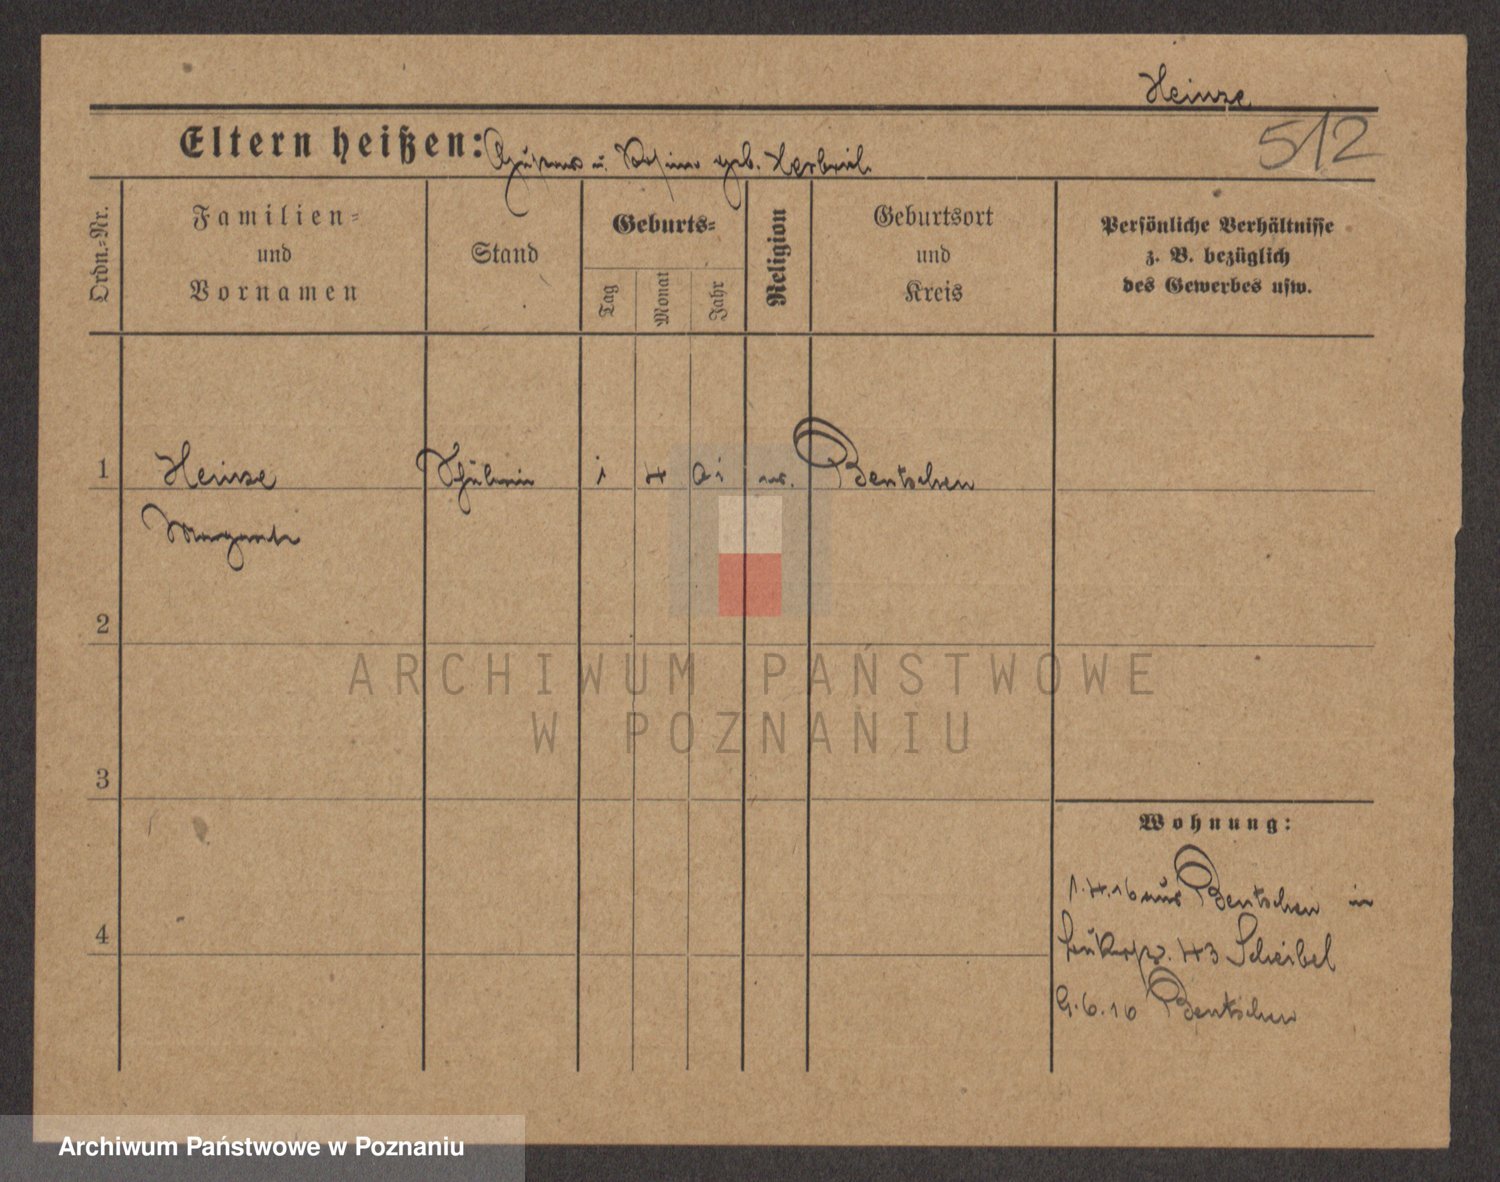 Heinze
512
Eltern heißen: Gustav u. geb.
Ordn.=Nr.
Familien=
und
Vornamen
Stand
Geburts=
Tag
Monat
Jahr
Religion
Geburtsort
und
Kreis
Persönliche Verhältnisse
z. B. bezüglich
des Gewerbes usw.
1 Heinze Schülerin 1 4 01 ev. Bentschen
Margarete
2
3
4
Wohnung:
1.4.16 aus Bentschen in
43 Scheibel
9.6.16 Bentschen
ARCHIWUM PAŃSTWOWE
W POZNANIU
Archiwum Państwowe w Poznaniu